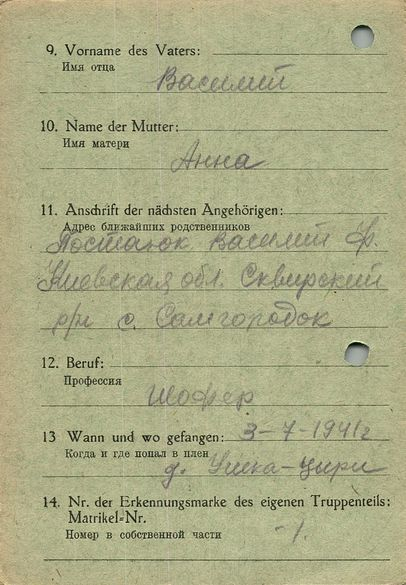 9. Vorname des Vaters:
Имя отца
Василий
10. Name der Mutter:
Имя матери
Анна
11. Anschrift der nächsten Angehörigen:
Адрес ближайших родственников
Василий Ф.
Киевская обл. Сквирский
р/н с. Самгородок
12. Beruf:
Профессия
Шофер
13 Wann und wo gefangen: 3-7-1941г
Когда и где попал в плен
д.
14. Nr. der Erkennungsmarke des eigenen Truppenteils:
Matrikel-Nr.
Номер в собственной части